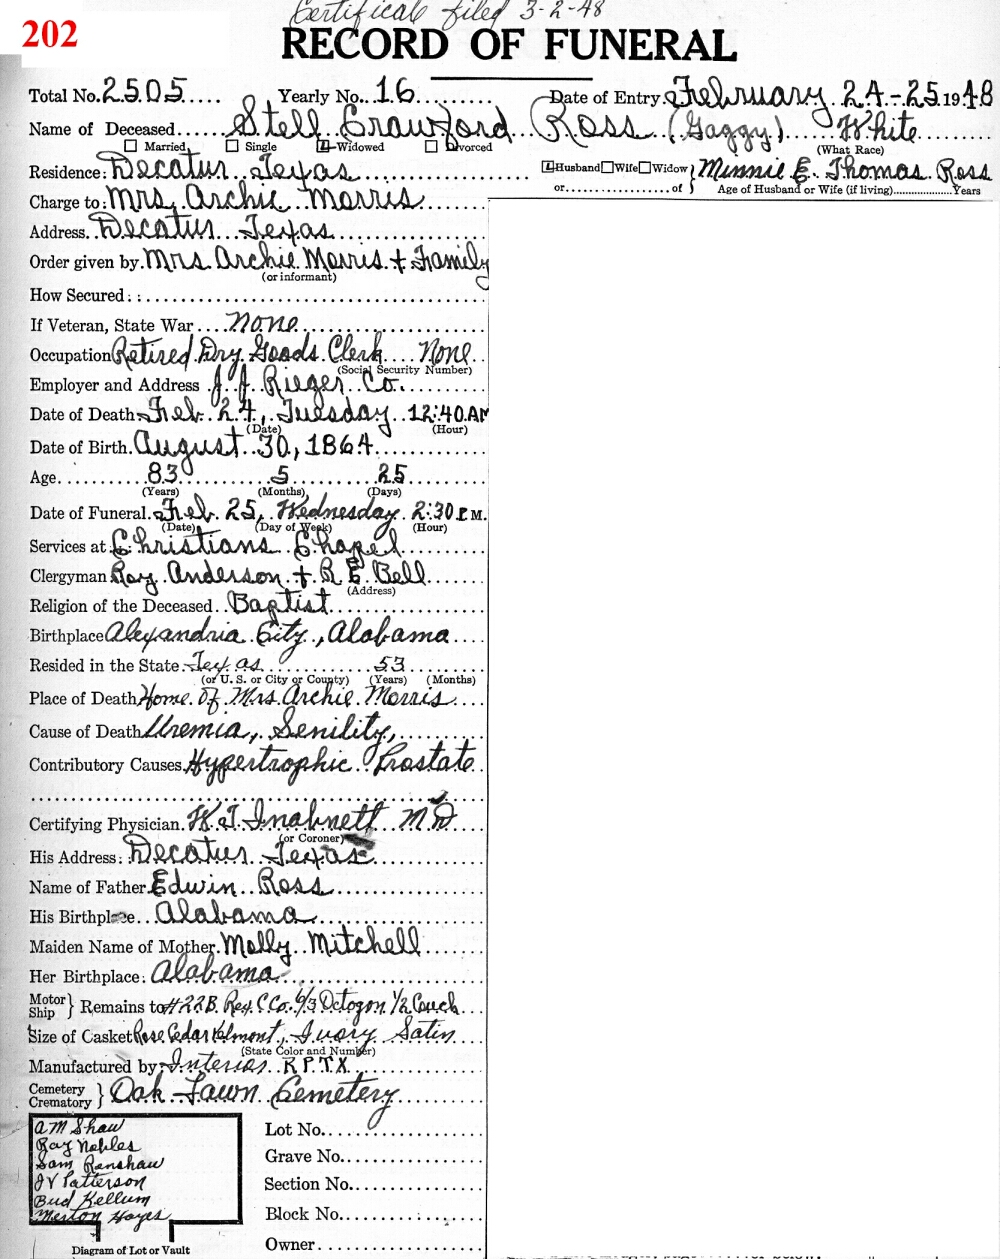 Certificate filed 3-2-48
202
RECORD OF FUNERAL
Total No. 2505 Yearly No. 16 Date of Entry February 24-25 1948
Name of Deceased Stell Crawford Ross (Gaggy) White
Married Single Widowed Divorced (What Race)
Residence: Decatur Texas Husband Wife Widow } Minnie E. Thomas Ross
or of Age of Husband or Wife (if living) Years
Charge to: Mrs. Archie Morris
Address Decatur Texas
Order given by Mrs. Archie Morris + Family
(or informant)
How Secured:
If Veteran, State War None
Occupation Retired Dry Goods Clerk None
(Social Security Number)
Employer and Address J. J. Rieger Co.
Date of Death Feb. 24, Tuesday 12:40 AM
(Date) (Hour)
Date of Birth August 30, 1864
Age 83 5 25
(Years) (Months) (Days)
Date of Funeral Feb. 25, Wednesday 2:30 P.M.
(Date) (Day of Week) (Hour)
Services at Christians Chapel
Clergyman Ray Anderson + R E Bell
(Address)
Religion of the Deceased Baptist
Birthplace Alexandria City, Alabama
Resided in the State Texas 53
(or U. S. or City or County) (Years) (Months)
Place of Death Home Of Mrs. Archie Morris
Cause of Death Uremia, Senility,
Contributory Causes Hypertrophic Prostate
Certifying Physician W. J. Inabnett MD
(or Coroner)
His Address: Decatur Texas
Name of Father Edwin Ross
His Birthplace Alabama
Maiden Name of Mother Molly Mitchell
Her Birthplace: Alabama
Motor
Ship } Remains to #22B. Rex. C Co. 6/3 Octogon 1/2 Couch
Size of Casket Rose Cedar Ivory Satin
(State Color and Number)
Manufactured by Interior
Cemetery
Crematory } Oak Lawn Cemetery
A M Shaw
Ray Nobles
Sam Renshaw
J V Patterson
Bud Kellum
Merton Hayes
Diagram of Lot or Vault
Lot No.
Grave No.
Section No.
Block No.
Owner